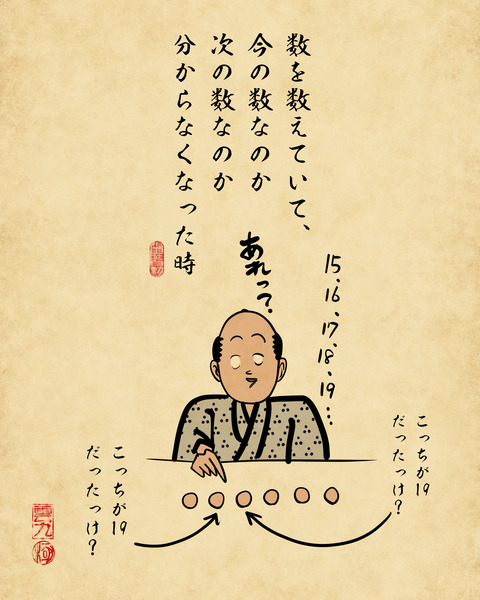 数を数えていて、
今の数なのか
次の数なのか
分からなくなった時
あれっ?
15、16、17、18、19…
こっちが19
だったっけ?
こっちが19
だったっけ?